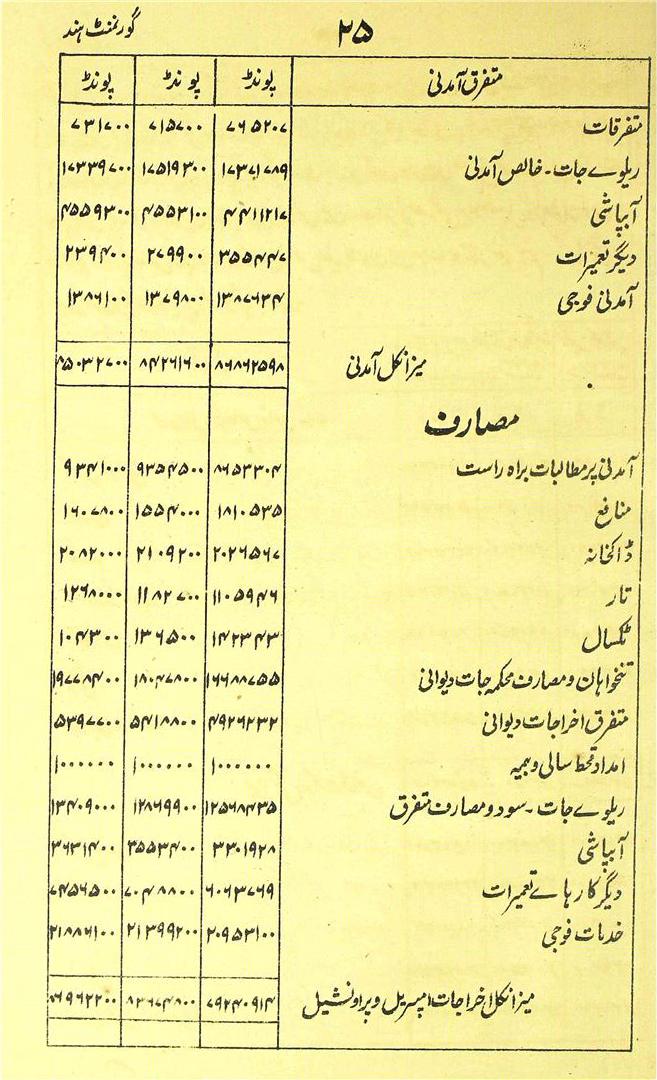 ۲۵
گورنمنٹ ہند
متفرق آمدنی پونڈ پونڈ پونڈ
متفرقات ۷۶۵۲۰۷ ۷۱۵۷۰۰ ۷۳۱۷۰۰
ریلوے جات - خالص آمدنی ۱۷۳۷۱۷۸۹ ۱۷۵۱۹۳۰۰ ۱۷۳۳۹۷۰۰
آبپاشی ۴۴۱۱۲۱۷ ۴۵۵۳۱۰۰ ۴۵۵۹۳۰۰
دیگر تعمیرات ۳۵۵۴۴۷ ۲۷۹۹۰۰ ۲۳۹۴۰۰
آمدنی فوجی ۱۳۸۷۶۳۴ ۱۳۷۹۸۰۰ ۱۳۸۶۱۰۰
میزان کل آمدنی ۸۶۸۶۲۵۹۸ ۸۴۲۶۱۶۰۰ ۸۵۰۳۲۷۰۰
مصارف
آمدنی پر مطالبات براہ راست ۸۶۵۳۳۰۴ ۹۳۵۴۵۰۰ ۹۳۴۱۰۰۰
منافع ۱۸۱۰۵۳۵ ۱۵۵۴۰۰۰ ۱۶۰۷۸۰۰
ڈاکخانہ ۲۰۲۶۵۶۷ ۲۱۰۹۲۰۰ ۲۰۸۲۰۰۰
تار ۱۱۰۵۹۴۶ ۱۱۸۲۷۰۰ ۱۲۶۸۰۰۰
ٹکسال ۱۴۲۳۴۳ ۱۳۶۵۰۰ ۱۰۴۳۰۰
تنخواہان و مصارف محکمہ جات دیوانی ۱۶۶۸۸۷۵۵ ۱۸۰۴۷۸۰۰ ۱۹۷۷۸۴۰۰
متفرق اخراجات دیوانی ۴۹۲۶۲۳۲ ۵۴۱۸۸۰۰ ۵۳۹۷۷۰۰
امداد قحط سالی و بیمہ ۱۰۰۰۰۰۰ ۱۰۰۰۰۰۰ ۱۰۰۰۰۰۰
ریلوے جات - سود و مصارف متفرق ۱۲۵۶۸۴۳۵ ۱۲۸۶۹۹۰۰ ۱۳۴۰۹۰۰۰
آبپاشی ۳۳۰۱۹۲۸ ۳۵۵۳۴۰۰ ۳۶۳۱۴۰۰
دیگر کارہائے تعمیرات ۶۰۶۳۷۶۹ ۷۰۴۸۸۰۰ ۷۴۵۶۵۰۰
خدمات فوجی ۲۰۹۵۳۱۰۰ ۲۱۳۹۹۲۰۰ ۲۱۸۸۶۱۰۰
میزان کل اخراجات امپیریل و پراونشیل ۷۹۲۴۰۹۱۴ ۸۳۶۷۴۸۰۰ ۸۶۹۶۲۲۰۰